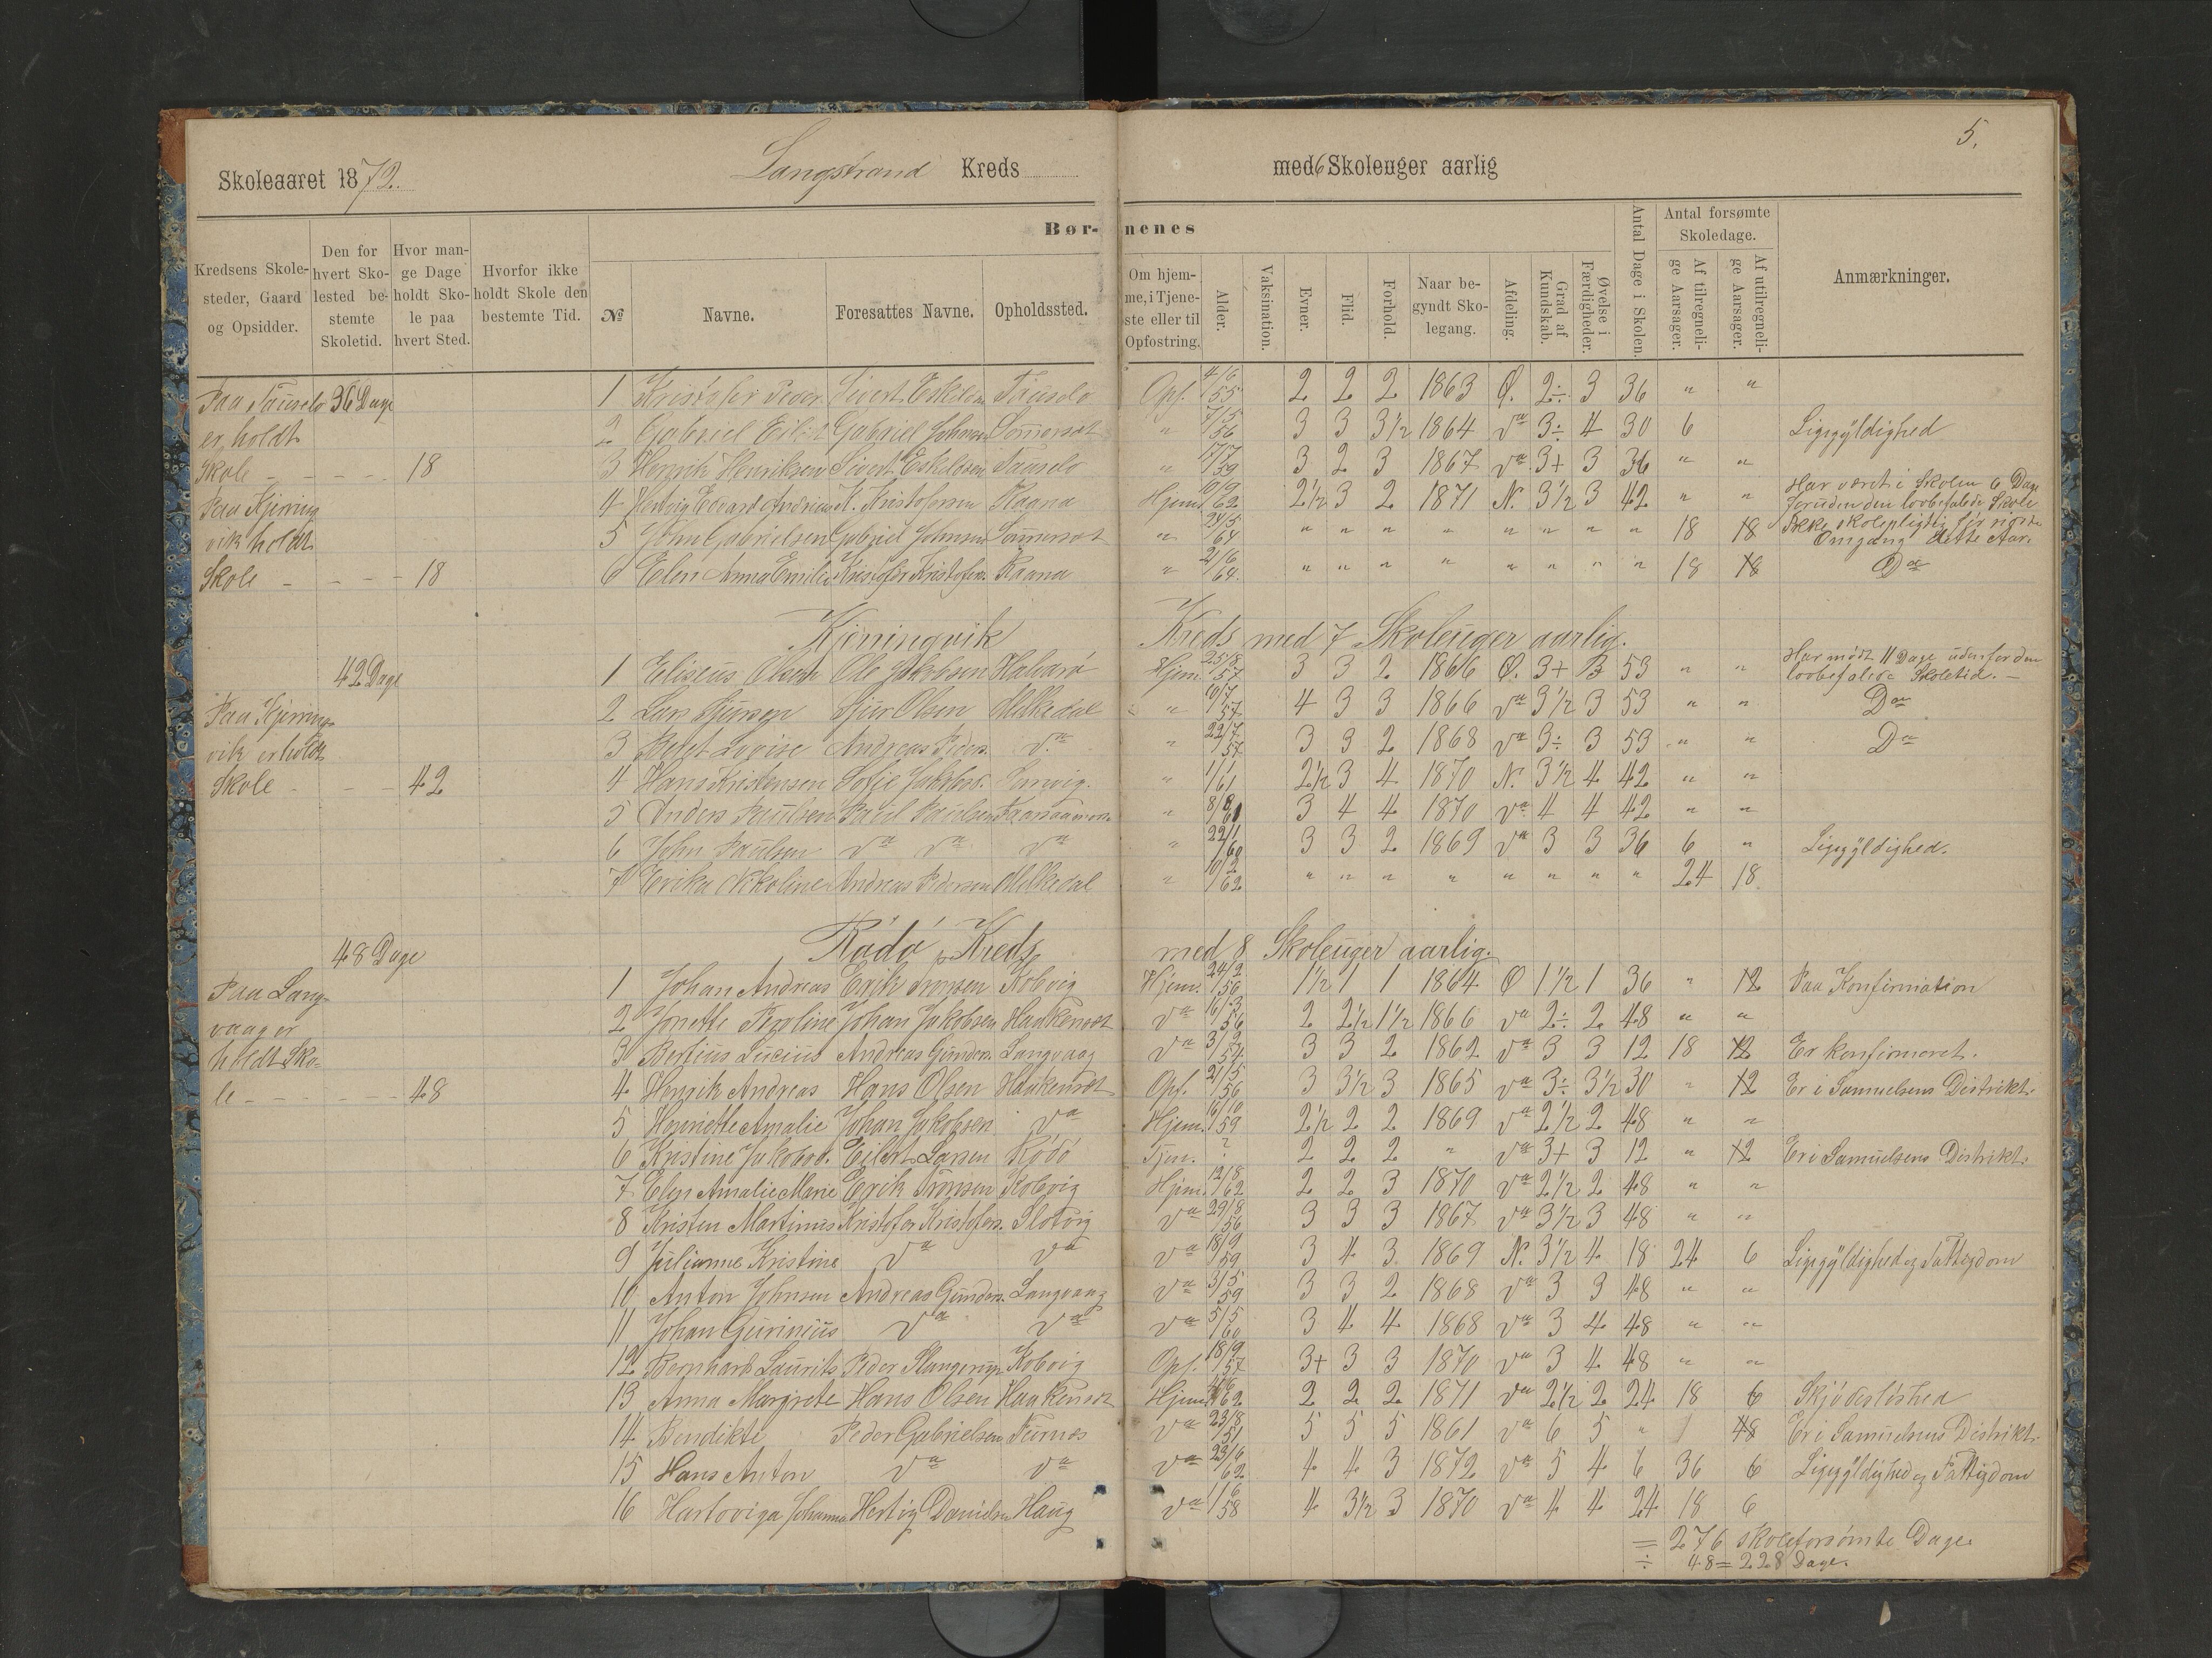 5.
Skoleaaret 1872. Langstrand Kreds med 6 Skoleuger aarlig
Bør- nenes
Kredsens Skolesteder, Gaard og Opsidder.
Den for hvert Skolested bestemte Skoletid.
Hvor mange Dage holdt Skole paa hvert Sted.
Hvorfor ikke holdt Skole den bestemte Tid.
№
Navne.
Foresattes Navne.
Opholdssted.
Om hjemme, i Tjeneste eller til Opfostring.
Alder.
Vaksination.
Evner.
Flid.
Forhold.
Naar begyndt Skolegang.
Afdeling.
Grad af Kundskab.
Øvelse i Færdigheder.
Antal Dage i Skolen.
Antal forsømte Skoledage.
Af tilregnelige Aarsager.
Af utilregnelige Aarsager.
Anmærkninger.
Paa Tauselv 36 Dage 1 Kristofer Peder Sivert Eskilds Tauselv Opf. 4/6 55 2 2 2 1863 Ø. 2÷ 3 36 " "
er holdt 2 Gabriel Eilert Gabriel Johnsen Sommerset " 7/5 56 3 3 3½ 1864 da 3÷ 4 30 6 Ligegyldighed
Skole - - - - 18 3 Henrik Henriksen Sivert Eskildsen Tauselv " 17/7 59 3 2 3 1867 da 3+ 3 36 " "
Paa Kjerring 4 Hertvig Edvard Andreas K. Kristofersen Raana Hjem. 10/9 62 2½ 3 2 1871 N. 3½ 3 42 " " Har været i Skolen 6 Dage foruden den lovbefalede Skole
vik holdt 5 John Gabrielsen Gabriel Johnsen Sommerset " 24/5 64 " " " " " " " " 18 18 Ikke skolepligtig før næste Omgang dette Aar.
Skole - - - - 18 6 Elen Anna Emilie Kristofer Kristofers. Raana " 21/6 64. " " " " " " " " 18 18 Da
Kjerringvik Kreds med 7 Skoleuger aarlig.
42 Dage 1 Eliseus Olsen Ole Jakobsen Halvarø Hjem. 25/8 57 3 3 2 1866 Ø. 3+ 3 53 " " Har mødt 11 Dage udenfor den lovbefalede Skoletid. -
Paa Kjerring 2 Lars Sjursen Sjur Olsen Melkedal " 10/7 57 4 3 3 1866 da 3½ 3 53 " " Da
vik er holdt 3 Beret Lovise Andreas Peders. da " 22/7 57 3 3 2 1868 da 3÷ 3 53 " " Da
Skole - - - 42 4 Hans Kristensen Sofie Jakobsd. " 1/1 61 2½ 3 4 1870 N. 3½ 4 42 " "
5 Anders Paulsen Paul Paulsen " 8/8 61 3 4 4 1870 da 4 4 42 " "
6 John Paulsen da da da " 22/1 60 3 3 2 1869 da 3 3 36 6 " Ligegyldighed.
7 Erika Nikoline Andreas Pedersen Melkedal " 10/2 62 " " " " " " " " 24 18
Rødø Kreds med 8 Skoleuger aarlig.
48 Dage
Paa Lang- 1 Johan Andreas Erik Tronsen Kobvig Hjem. 24/2 56 1½ 1 1 1864 Ø 1½ 1 36 " 12 Paa Konfirmation
vaag er 2 Jonette Peroline Johan Jakobsen Haakenset da 16/3 56 2 2½ 1½ 1866 da 2÷ 2 48 " "
holdt Sko- 3 Bertius Lucius Andreas Gunders. Langvaag da 3/2 54. 3 3 2 1862 da 3 3 12 18 12 Er konfirmeret.
le - - - - - - 48 4 Henrik Andreas Hans Olsen Haakenset Opf. 21/5 56 3 3½ 3 1865 da 3÷ 3½ 30 " 12 Er i Samuelsens Distrikt.
5 Henriette Amalie Johan Jakobsen da Hjem. 16/10 59 2½ 2 2 1869 da 2½ 2 48 " "
6 Kristine Jakobsd. Eilert Larsen Rødø Tjen. ? 2 2 2 " da 3+ 3 12 " 12 Er i Samuelsens Distrikt.
7 Elen Amalie Marie Erik Tronsen Kobvig Hjem. 12/8 62 2 2 3 1870 da 2½ 2 48 " "
8 Kristen Martinus Kristofer Kristofers. Slotvig da 29/8 56 3 3 3 1867 da 3½ 3 48 " "
9 Julianne Kristine da da da 18/9 59 3 4 3 1869 N. 3½ 4 18 24 6 Ligegyldighed og Fattigdom
10 Anton Johnsen Andreas Gunders. Langvaag da 3/5 59 3 3 2 1868 da 3 3 48 " "
11 Johan Gurinius da da da 5/5 60 3 4 4 1868 da 3 4 48 " "
12 Bernhard Laurits Peder Slangerup Kobvig Opf. 18/9 57 3+ 3 3 1870 da 3 4 48 " "
13 Anna Margrete Hans Olsen Haakenset Hjem. 4/6 62 2 2 2 1871 da 2½ 2 24 18 6 Skjødesløshed
14 Bendikte Peder Gabrielsen Furnes da 23/8 51 5 5 5 1861 da 6 5 " 48 Er i Samuelsens Distrikt.
15 Hans Anton da da da 23/6 62 4 4 3 1872 da 5 4 6 36 6 Ligegyldighed og Fattigdom
16 Hartviga Johanna Hertig Danielsen Haug da 1/6 58 4 3½ 3 1870 da 4 4 24 18 6
= 276 skoleforsømte Dage.
÷ 48 = 228 Dage.